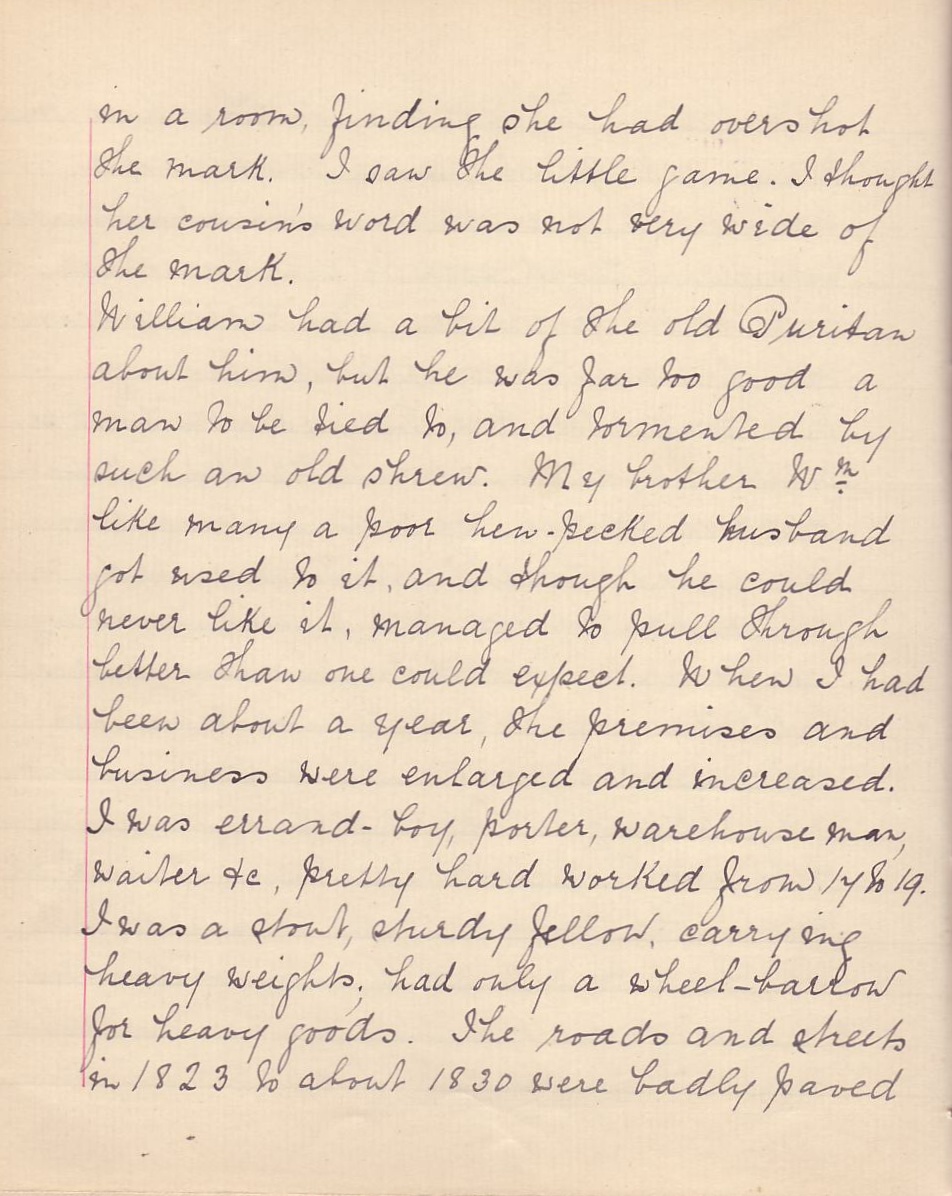 in a room, finding she had overshot
the mark. I saw the little game. I thought
her cousin's word was not very wide of
the mark.
William had a bit of the old Puritan
about him, but he was far too good a
man to be tied to, and tormented by
such an old shrew. My brother Wm
like many a poor hen-pecked husband
got used to it, and though he could
never like it, managed to pull through
better than one could expect. When I had
been about a year, the premises and
business were enlarged and increased.
I was errand-boy, porter, warehouse man,
waiter &c, pretty hard worked from 17 to 19.
I was a stout, sturdy fellow, carrying
heavy weights; had only a wheel-barrow
for heavy goods. The roads and streets
in 1823 to about 1830 were badly paved